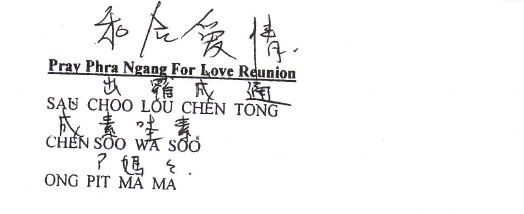 和合愛情
Pray Phra Ngang For Love Reunion
出 羅 成 通
SAU CHOO LOU CHEN TONG
成 素 哇 素
CHEN SOO WA SOO
媽
ONG PIT MA MA